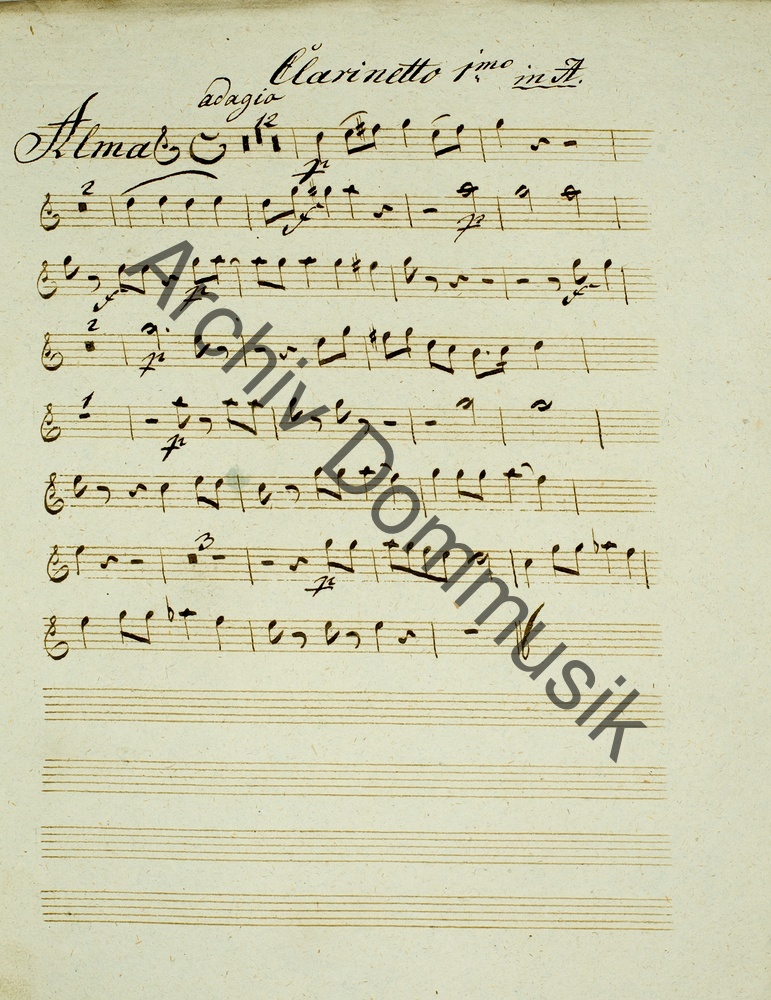 Clarinetto 1mo in A.
adagio
12
Alma
p
2
f
p
f
p
f
2
p
1
p
3
p
Archiv Dommusik